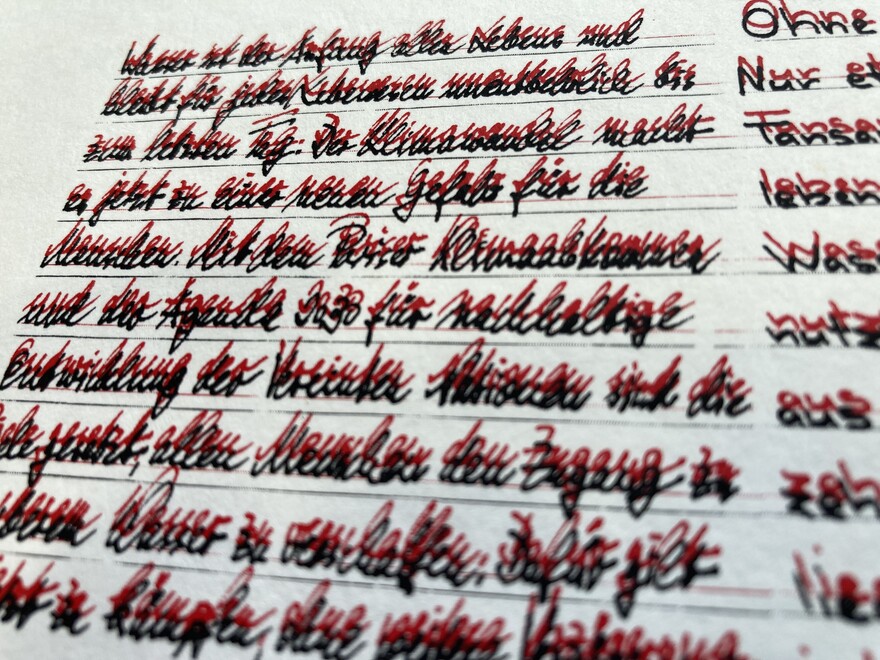 Wasser ist der Anfang allen Lebens und
bleibt für jedes Lebewesen unentbehrlich bis
zum letzten Tag. Der Klimawandel macht
es jetzt zu einer neuen Gefahr für die
Menschen. Mit dem Pariser Klimaabkommen
und der Agenda 2030 für nachhaltige
Entwicklung der Vereinten Nationen sind die
gesetzt, allen Menschen den Zugang zu
Wasser zu verschaffen. Dafür gilt
zu kämpfen, ohne weitere Verzögerung
Ohne
Nur
Tansa
leben
Wass
nutz
aus